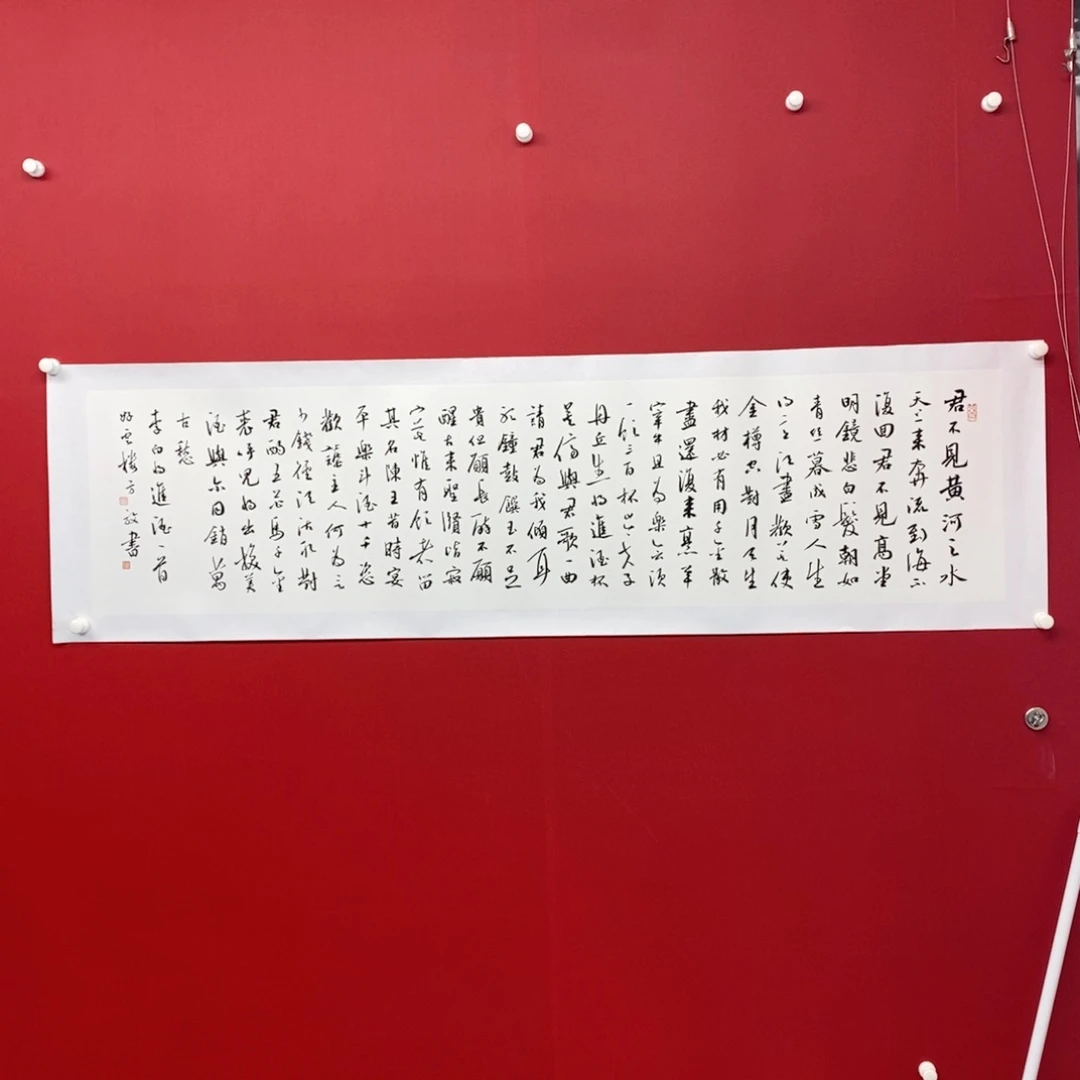 君不見黃河之水
天上来奔流到海不
復回君不見高堂
明鏡悲白髮朝如
青丝暮成雪人生
得意須盡歡莫使
金樽空對月天生
我材必有用千金散
盡還復来烹羊
宰牛且為樂會須
一飲三百杯岑夫子
丹丘生將進酒杯
莫停與君歌一曲
請君為我傾耳
聽鐘鼓饌玉不足
貴但願長醉不願
醒古来聖賢皆寂
寞惟有飲者留
其名陳王昔時宴
平樂斗酒十千恣
歡謔主人何為言
少錢徑須沽取對
君酌五花馬千金
裘呼兒將出換美
酒與尔同銷萬
古愁
李白將進酒一首
好雲樓方書